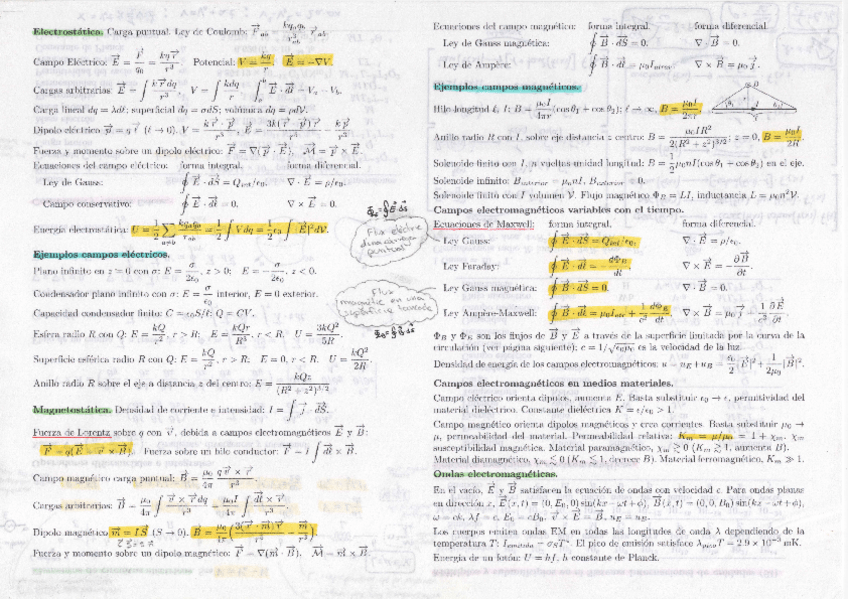 Electrostática. Carga puntual. Ley de Coulomb: F⃗ab = kqaqb/r³ab r⃗ab.
Campo Eléctrico: E⃗ = F⃗/q0 = kq r⃗/r³. Potencial: V = kq/r, E⃗ = −∇V.
Cargas arbitrarias: E⃗ = ∫ k r⃗ dq/r³, V = ∫ kdq/r, ∫ E⃗ · dl⃗ = Va − Vb.
Carga lineal dq = λdl; superficial dq = σdS; volúmica dq = ρdV.
Dipolo eléctrico p⃗ = q l⃗ (l → 0). V = k r⃗ · p⃗/r³, E⃗ = 3k( r⃗ · p⃗ ) r⃗/r⁵ − k p⃗/r³.
Fuerza y momento sobre un dipolo eléctrico: F⃗ = ∇( p⃗ · E⃗ ), M⃗ = p⃗ × E⃗.
Ecuaciones del campo eléctrico: forma integral. forma diferencial.
Ley de Gauss: ∮ E⃗ · dS⃗ = Qint/ε0. ∇ · E⃗ = ρ/ε0.
Campo conservativo: ∮ E⃗ · dl⃗ = 0. ∇ × E⃗ = 0.
Flujo eléctrico
puntual
Energía electrostática: U = 1/2 ∑a≠b kqaqb/rab = 1/2 ∫ V dq = 1/2 ε0 ∫ |E⃗|² dV.
Ejemplos campos eléctricos.
Plano infinito en z = 0 con σ: E = σ/2ε0, z > 0; E = −σ/2ε0, z < 0.
Flujo
magnético en una
superficie
Condensador plano infinito con σ: E = σ/ε0 interior, E = 0 exterior.
Capacidad condensador finito: C = ε0S/l; Q = CV.
Esfera radio R con Q: E = kQ/r², r > R; E = kQr/R³, r < R. U = 3kQ²/5R.
Superficie esférica radio R con Q: E = kQ/r², r > R; E = 0, r < R. U = kQ²/2R.
Anillo radio R sobre el eje a distancia z del centro: E = kQz/(R² + z²)^3/2
Magnetostática. Densidad de corriente e intensidad: I = ∫ j⃗ · dS⃗.
Fuerza de Lorentz sobre q con v⃗, debida a campos electromagnéticos E⃗ y B⃗:
F⃗ = q(E⃗ + v⃗ × B⃗). Fuerza sobre un hilo conductor: F⃗ = I ∫ dl⃗ × B⃗.
Campo magnético carga puntual: B⃗ = μ0/4π q v⃗ × r⃗/r³.
Cargas arbitrarias: B⃗ = μ0/4π ∫ v⃗ × r⃗ dq/r³ = μ0I/4π ∫ dl⃗ × r⃗/r³.
Dipolo magnético m⃗ = I S⃗ (S → 0). B⃗ = μ0/4π (3( r⃗ · m⃗ ) r⃗/r⁵ − m⃗/r³).
Fuerza y momento sobre un dipolo magnético: F⃗ = ∇( m⃗ · B⃗ ). M⃗ = m⃗ × B⃗.
Ecuaciones del campo magnético: forma integral. forma diferencial.
Ley de Gauss magnética: ∮ B⃗ · dS⃗ = 0. ∇ · B⃗ = 0.
Ley de Ampère: ∮ B⃗ · dl⃗ = μ0Iatrav. ∇ × B⃗ = μ0 j⃗.
Ejemplos campos magnéticos.
Hilo longitud ℓ, I: B = μ0I/4πr (cos θ1 + cos θ2); ℓ → ∞, B = μ0I/2πr
Anillo radio R con I, sobre eje distancia z centro: B = μ0IR²/2(R² + z²)^3/2; z = 0, B = μ0I/2R
Solenoide finito con I, n vueltas unidad longitud: B = 1/2 μ0nI(cos θ1 + cos θ2) en el eje.
Solenoide infinito: Binterior = μ0nI, Bexterior = 0.
Solenoide finito con I volumen V. Flujo magnético ΦB = LI, inductancia L = μ0n²V.
Campos electromagnéticos variables con el tiempo.
Ecuaciones de Maxwell: forma integral. forma diferencial.
Ley Gauss: ∮ E⃗ · dS⃗ = Qint/ε0. ∇ · E⃗ = ρ/ε0.
Ley Faraday: ∮ E⃗ · dl⃗ = −dΦB/dt. ∇ × E⃗ = −∂B⃗/∂t
Ley Gauss magnética: ∮ B⃗ · dS⃗ = 0. ∇ · B⃗ = 0.
Ley Ampère-Maxwell: ∮ B⃗ · dl⃗ = μ0Iatr + 1/c² dΦE/dt. ∇ × B⃗ = μ0 j⃗ + 1/c² ∂E⃗/∂t.
ΦB y ΦE son los flujos de B⃗ y E⃗ a través de la superficie limitada por la curva de la
circulación (ver página siguiente); c = 1/√ε0μ0 es la velocidad de la luz.
Densidad de energía de los campos electromagnéticos: u = uE + uB = ε0/2 |E⃗|² + 1/2μ0 |B⃗|².
Campos electromagnéticos en medios materiales.
Campo eléctrico orienta dipolos, aumenta E. Basta substituir ε0 → ε, permitividad del
material dieléctrico. Constante dieléctrica K = ε/ε0 > 1.
Campo magnético orienta dipolos magnéticos y crea corrientes. Basta substituir μ0 →
μ, permeabilidad del material. Permeabilidad relativa: Km = μ/μ0 = 1 + χm, χm
susceptibilidad magnética. Material paramagnético, χm ≳ 0 (Km ≳ 1, aumenta B).
Material diamagnético, χm ≲ 0 (Km ≲ 1, decrece B). Material ferromagnético, Km ≫ 1.
Ondas electromagnéticas.
En el vacío, E⃗ y B⃗ satisfacen la ecuación de ondas con velocidad c. Para ondas planas
en dirección z, E⃗(z, t) = (0, E0, 0) sin(kz − ωt + φ), B⃗(z, t) = (0, 0, B0) sin(kz − ωt + φ),
ω = ck, λf = c, E0 = cB0, v⃗ × B⃗ = E⃗, uE = uB.
Los cuerpos emiten ondas EM en todas las longitudes de onda λ dependiendo de la
temperatura T: Iemitida = σST⁴. El pico de emisión satisface λpico T = 2.9 × 10⁻³ mK.
Energía de un fotón: U = hf, h constante de Planck.